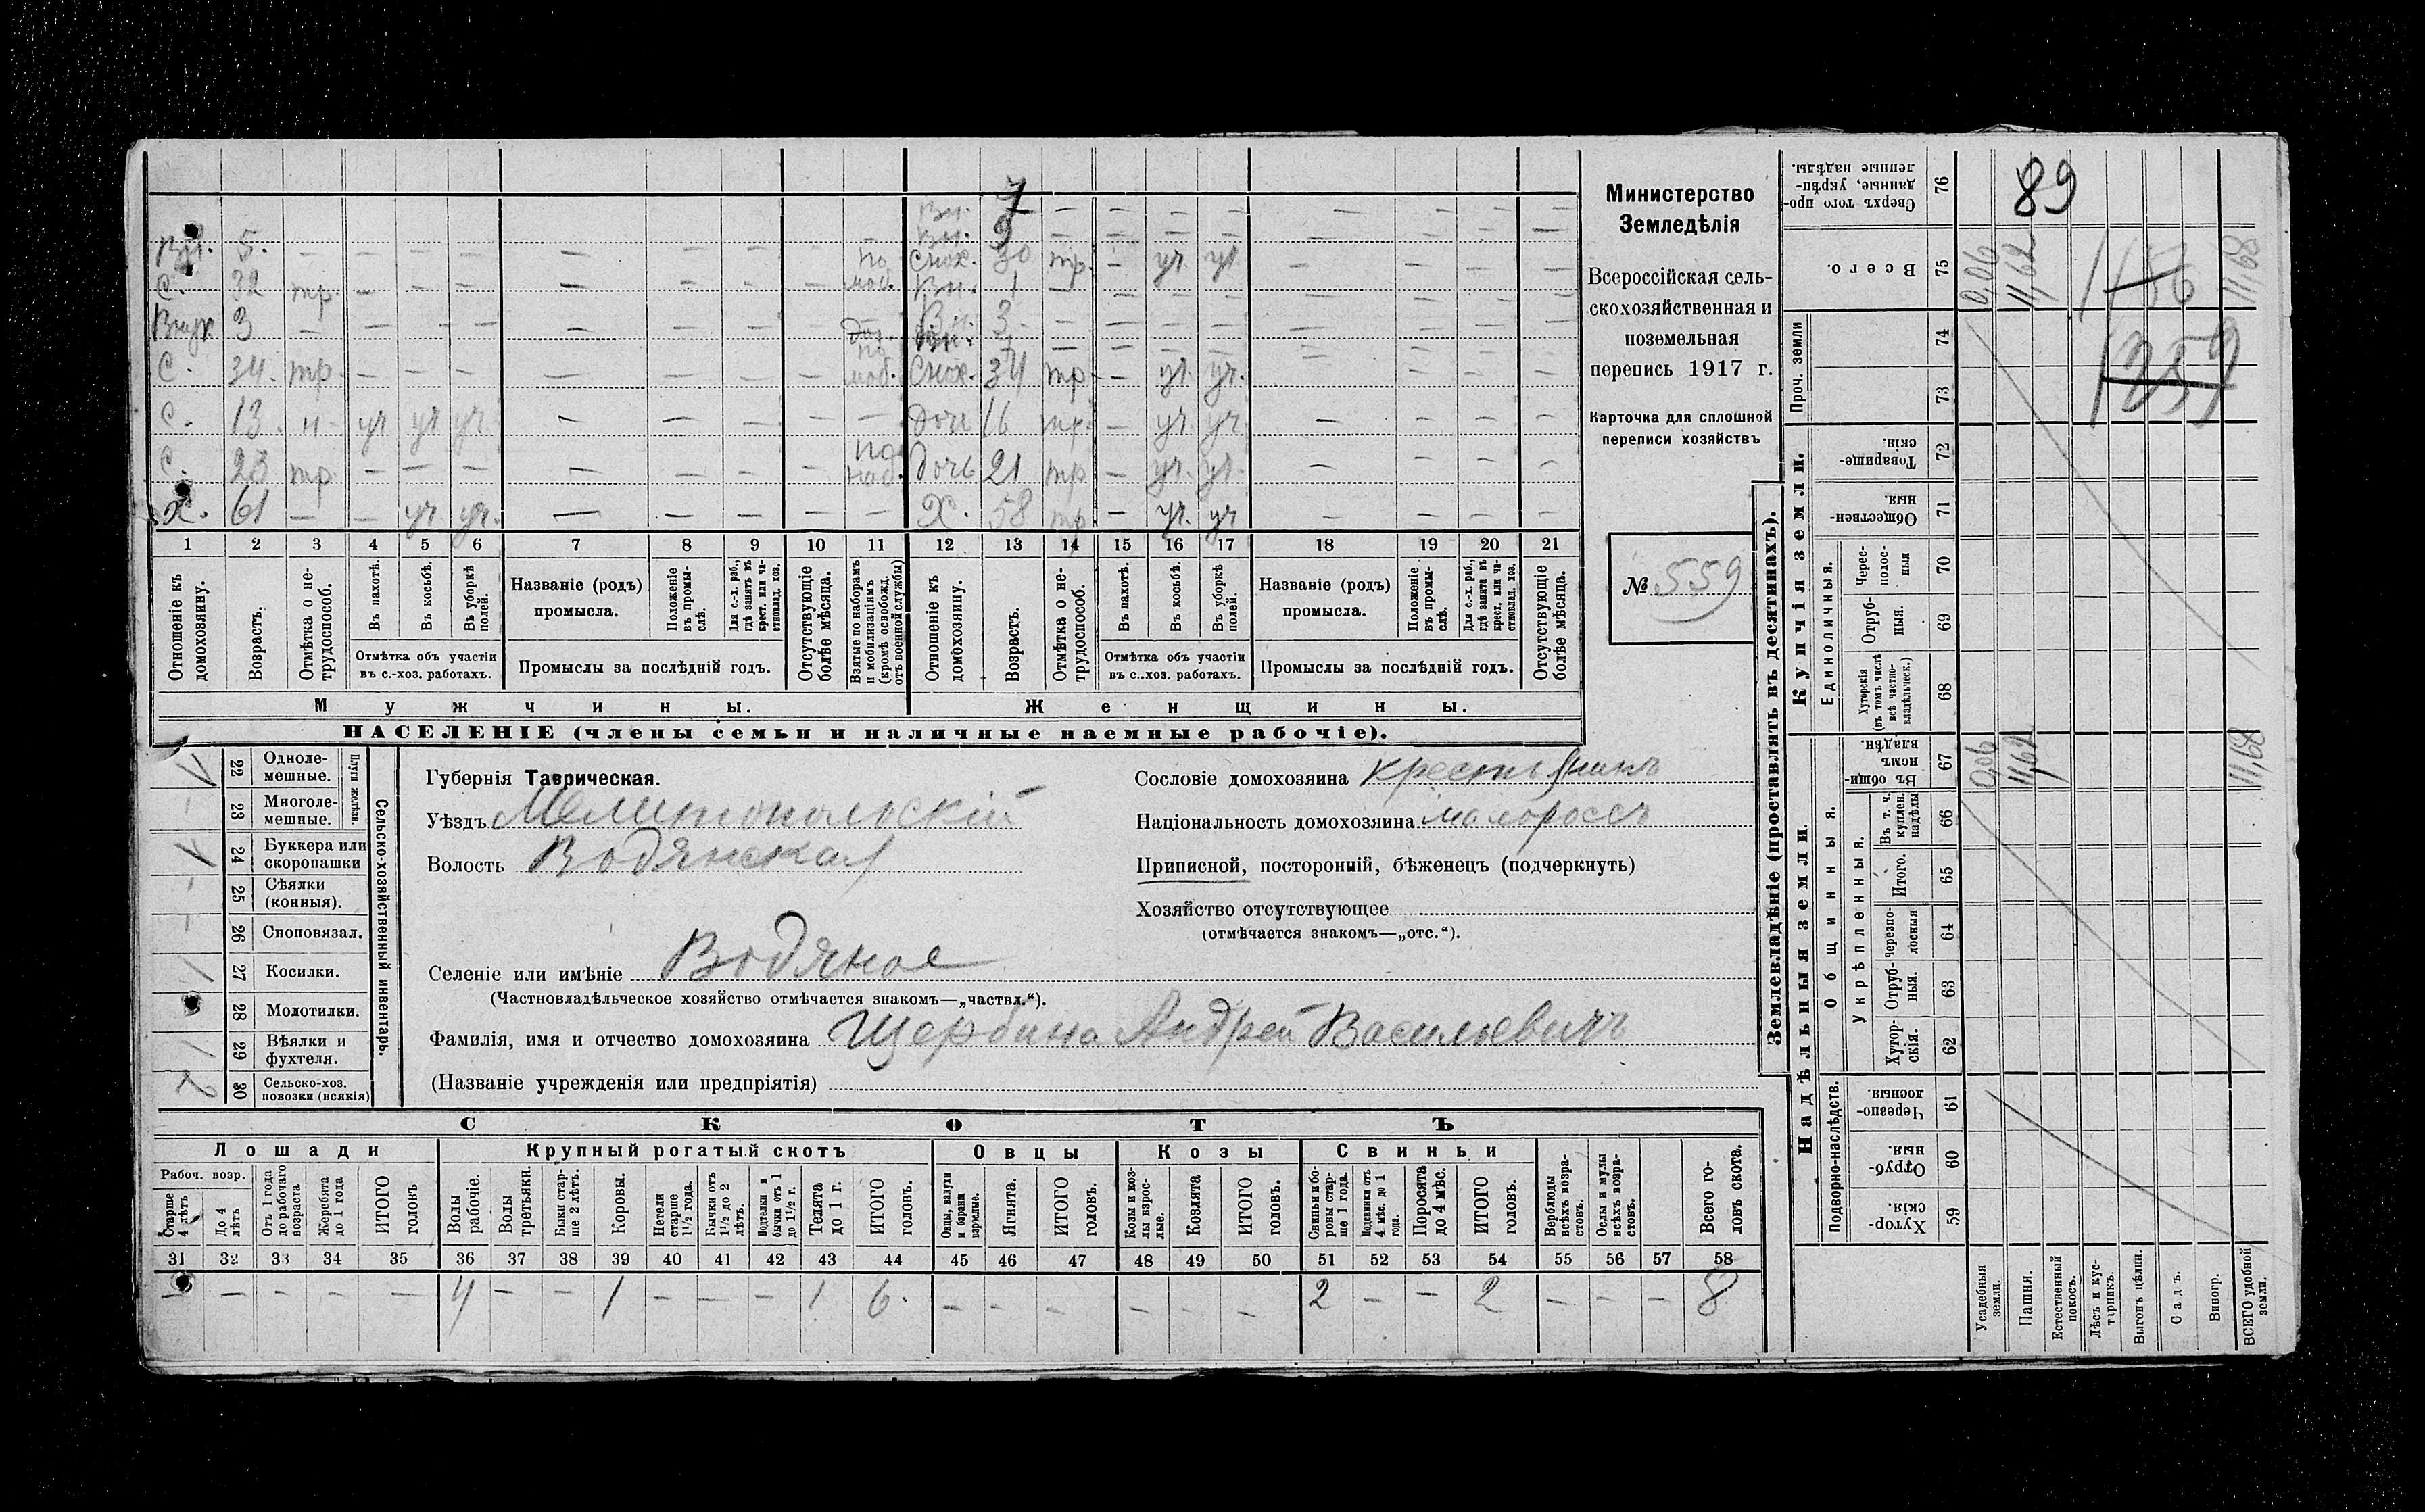 Вн. 7 — — — — — — — —
Вн. 9 — — — — — — — —
Вн. 5. — — — — — — — — —
по Снох. 30 тр. — уч. уч. — — — —
С. 32 тр. — — — — — — — моб. Вн. 1 — — — — — — — —
Внук 3 — — — — — — — — — Вн. 3 — — — — — — — —
С. 34. тр. — — — — — — — по моб. Снох. 34 тр — уч. уч. — — — —
С. 13 н. уч уч уч — — — — — дочь 16 тр. — уч. уч. — — — —
С. 23 тр. — — — — — — — по моб. дочь 21 тр — уч. уч. — — — —
Х. 61 — — уч уч. — — — — — Х. 58 тр — уч. уч — — — —
1 2 3 4 5 6 7 8 9 10 11 12 13 14 15 16 17 18 19 20 21
Отношеніе къ домохозяину.
Возрастъ.
Отмѣтка о нетрудоспособ.
Въ пахотѣ.
Въ косьбѣ.
Въ уборкѣ полей.
Отмѣтка объ участіи
въ с.-хоз. работахъ.
Названіе (родъ)
промысла.
Положеніе въ промыслѣ.
Для с.-х. раб., гдѣ занятъ въ крест. или частновлад. хоз.
Промыслы за послѣдній годъ.
Отсутствующіе болѣе мѣсяца.
Взятые по наборамъ и мобилизаціямъ (кромѣ освобожд. отъ военной службы)
Отношеніе къ домохозяину.
Возрастъ.
Отмѣтка о нетрудоспособ.
Въ пахотѣ.
Въ косьбѣ.
Въ уборкѣ полей.
Отмѣтка объ участіи
въ с..хоз. работахъ.
Названіе (родъ)
промысла.
Положеніе въ промыслѣ.
Для с.-х. раб., гдѣ занята въ крест. или частновлад. хоз.
Промыслы за послѣдній годъ.
Отсутствующіе болѣе мѣсяца.
Мужчины.
Женщины.
НАСЕЛЕНІЕ (члены семьи и наличные наемные рабочіе).
Министерство
Земледѣлія
Всероссійская сель-
скохозяйственная и
поземельная
перепись 1917 г.
Карточка для сплошной
переписи хозяйствъ
№ 559
22 Одноле-
мешные.
23 Многоле-
мешные.
Плуги желѣзн.
24 Буккера или
скоропашки
25 Сѣялки
(конныя).
26 Сноповязал.
27 Косилки.
28 Молотилки.
29 Вѣялки и
фухтеля.
30 Сельско-хоз.
повозки (всякія)
Сельско-хозяйственный инвентарь.
Губернія Таврическая.
Уѣздъ Мелитопольскій
Волость Водянская
Селеніе или имѣніе Водяное
(Частновладѣльческое хозяйство отмѣчается знакомъ—„частвл.“).
Фамилія, имя и отчество домохозяина Щербина Андрей Васильевичъ
(Названіе учрежденія или предпріятія)
Сословіе домохозяина крестьянинъ
Національность домохозяина малороссъ
Приписной, посторонній, бѣженецъ (подчеркнуть)
Хозяйство отсутствующее
(отмѣчается знакомъ—„отс.“).
СКОТЪ
Лошади
Рабоч. возр.
Старше 4 лѣтъ
До 4 лѣтъ
Отъ 1 года до рабочаго возраста
Жеребята до 1 года
ИТОГО головъ
Крупный рогатый скотъ
Волы рабочіе.
Волы третьяки.
Быки старше 2 лѣтъ.
Коровы.
Нетели старше 1½ года.
Бычки отъ 1½ до 2 лѣтъ.
Подтелки и бычки отъ 1 до 1½ г.
Телята до 1 г.
ИТОГО головъ.
Овцы
Овцы, валухи и бараны взрослые.
Ягнята.
ИТОГО головъ.
Козы
Козы и козлы взрослые.
Козлята
ИТОГО головъ.
Свиньи
Свиньи и боровы старше 1 года.
Подсвинки отъ 4 мѣс. до 1 года.
Поросята до 4 мѣс.
ИТОГО головъ.
Верблюды всѣхъ возрастовъ.
Ослы и мулы всѣхъ возрастовъ.
Всего головъ скота.
31 32 33 34 35 36 37 38 39 40 41 42 43 44 45 46 47 48 49 50 51 52 53 54 55 56 57 58
— — — — — 4 — — 1 — — — 1 6. — — — — — — 2 — — 2 — — — 8
Землевладѣніе (проставлять въ десятинахъ).
76 Сверхъ того проданные, укрѣпленные надѣлы.
89
75 Всего.
0,06 11,62 11,68
1456
1359
Проч. земли
74
73
Купчія земли.
72 Товарищескія.
71 Общественныя.
Единоличныя.
70 Чересполосныя
69 Отрубныя.
68 Хуторскія (въ томъ числѣ всѣ частновладѣльческ.)
Надѣльныя земли.
Общинныя.
67 Въ общинномъ владѣн.
0,06 11,62 11,68
Укрѣпленныя.
66 Въ т. ч. куплен. надѣлы
65 Итого.
64 Черезполосныя
63 Отрубныя.
62 Хуторскія.
Подворно-наслѣдств.
61 Черезполосныя.
60 Отрубныя.
59 Хуторскія.
Усадебныя земли.
Пашня.
Естественный покосъ.
Лѣсъ и кустарникъ.
Выгонъ цѣлин.
Садъ.
Виногр.
ВСЕГО удобной земли.